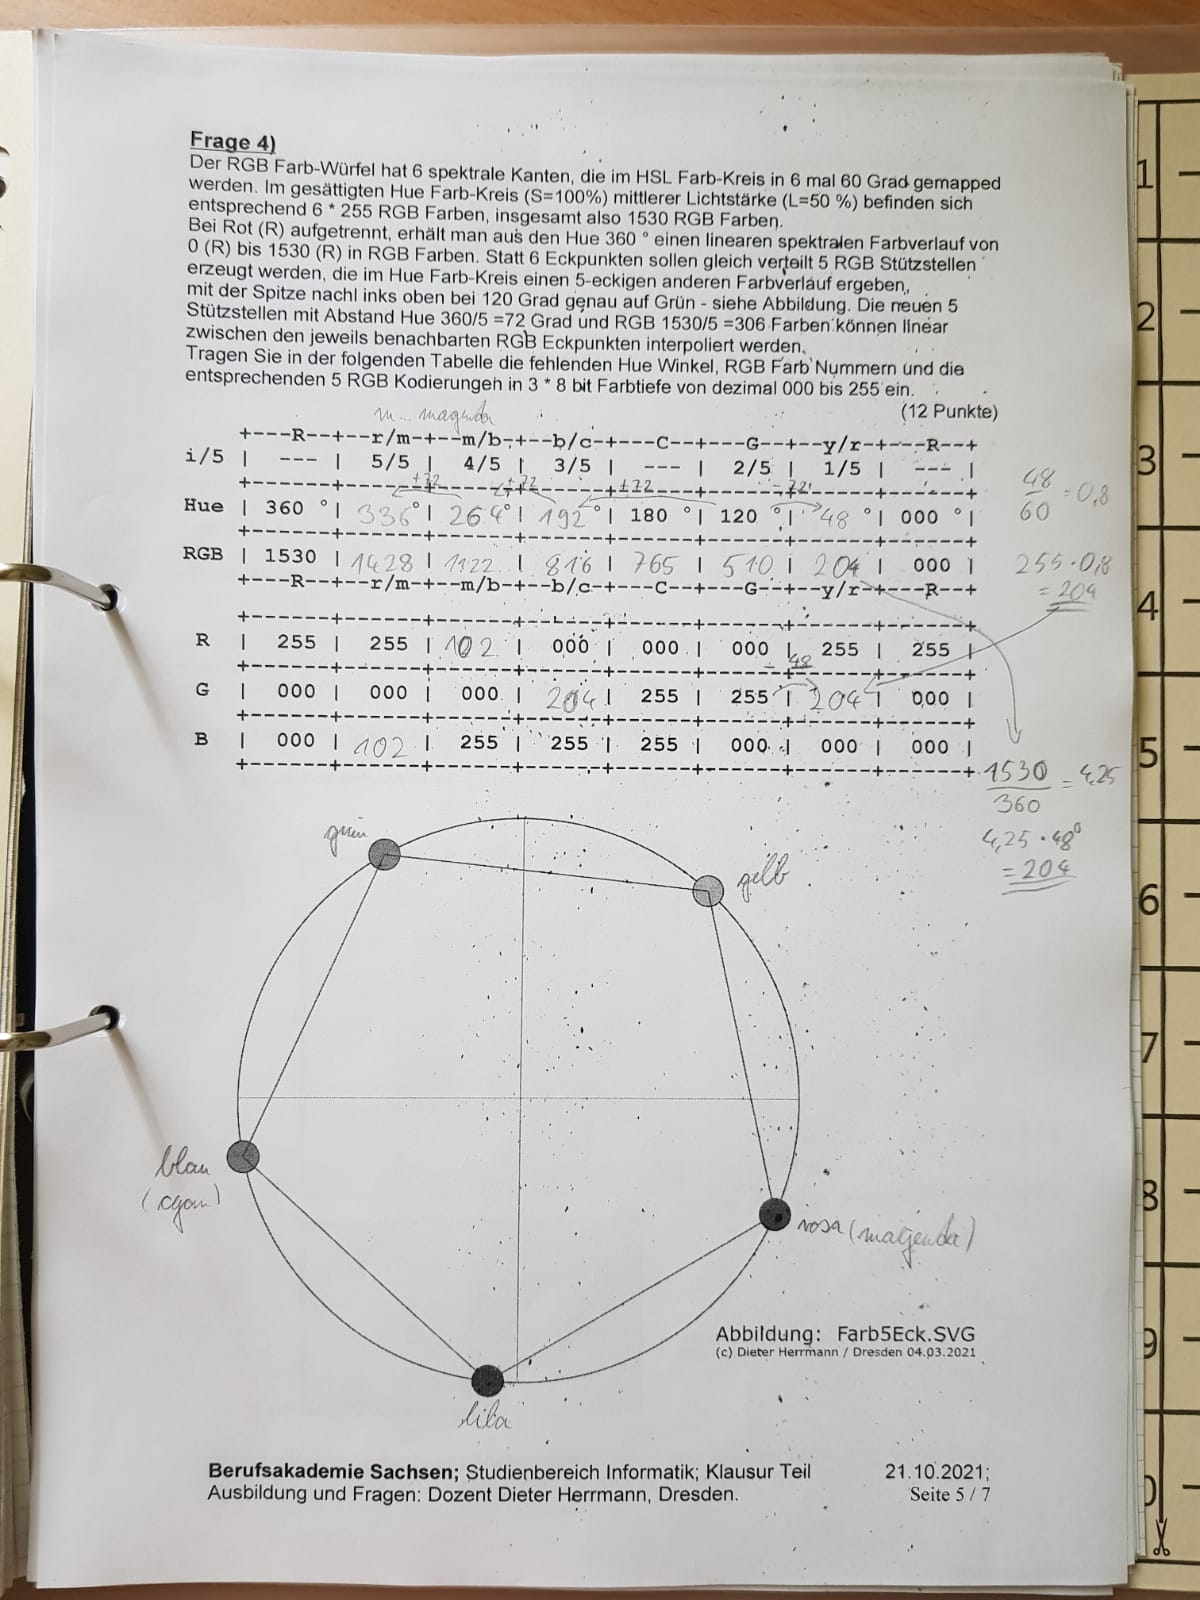 Frage 4)
Der RGB Farb-Würfel hat 6 spektrale Kanten, die im HSL Farb-Kreis in 6 mal 60 Grad gemapped
werden. Im gesättigten Hue Farb-Kreis (S=100%) mittlerer Lichtstärke (L=50 %) befinden sich
entsprechend 6 * 255 RGB Farben, insgesamt also 1530 RGB Farben.
Bei Rot (R) aufgetrennt, erhält man aus den Hue 360 ° einen linearen spektralen Farbverlauf von
0 (R) bis 1530 (R) in RGB Farben. Statt 6 Eckpunkten sollen gleich verteilt 5 RGB Stützstellen
erzeugt werden, die im Hue Farb-Kreis einen 5-eckigen anderen Farbverlauf ergeben,
mit der Spitze nachl inks oben bei 120 Grad genau auf Grün - siehe Abbildung. Die neuen 5
Stützstellen mit Abstand Hue 360/5 =72 Grad und RGB 1530/5 =306 Farben können linear
zwischen den jeweils benachbarten RGB Eckpunkten interpoliert werden.
Tragen Sie in der folgenden Tabelle die fehlenden Hue Winkel, RGB Farb Nummern und die
entsprechenden 5 RGB Kodierungen in 3 * 8 bit Farbtiefe von dezimal 000 bis 255 ein.
(12 Punkte)
m... magenda
+---R--+--r/m-+--m/b-+--b/c-+---C--+---G--+--y/r-+---R--+
i/5 | --- | 5/5 | 4/5 | 3/5 | --- | 2/5 | 1/5 | --- |
+72 +72 +72 -72
+------+------+------+------+------+------+------+------+
Hue | 360 ° | 336° | 264° | 192° | 180 ° | 120 ° | 48 ° | 000 ° |
+------+------+------+------+------+------+------+------+
RGB | 1530 | 1428 | 1122 | 816 | 765 | 510 | 204 | 000 |
+---R--+--r/m-+--m/b-+--b/c-+---C--+---G--+--y/r-+---R--+
48
60
=0,8
255·0,8
=204
+------+------+------+------+------+------+------+------+
R | 255 | 255 | 102 | 000 | 000 | 000 | 255 | 255 |
+------+------+------+------+------+------+------+------+
- 48
G | 000 | 000 | 000 | 204 | 255 | 255 | 204 | 000 |
+------+------+------+------+------+------+------+------+
B | 000 | 102 | 255 | 255 | 255 | 000 | 000 | 000 |
+------+------+------+------+------+------+------+------+
1530
360
=4,25
4,25·48°
=204
grün
gelb
blau
(cyan)
rosa (magenda)
lila
Abbildung: Farb5Eck.SVG
(c) Dieter Herrmann / Dresden 04.03.2021
Berufsakademie Sachsen; Studienbereich Informatik; Klausur Teil
Ausbildung und Fragen: Dozent Dieter Herrmann, Dresden.
21.10.2021;
Seite 5 / 7
1
2
3
4
5
6
7
8
9
0